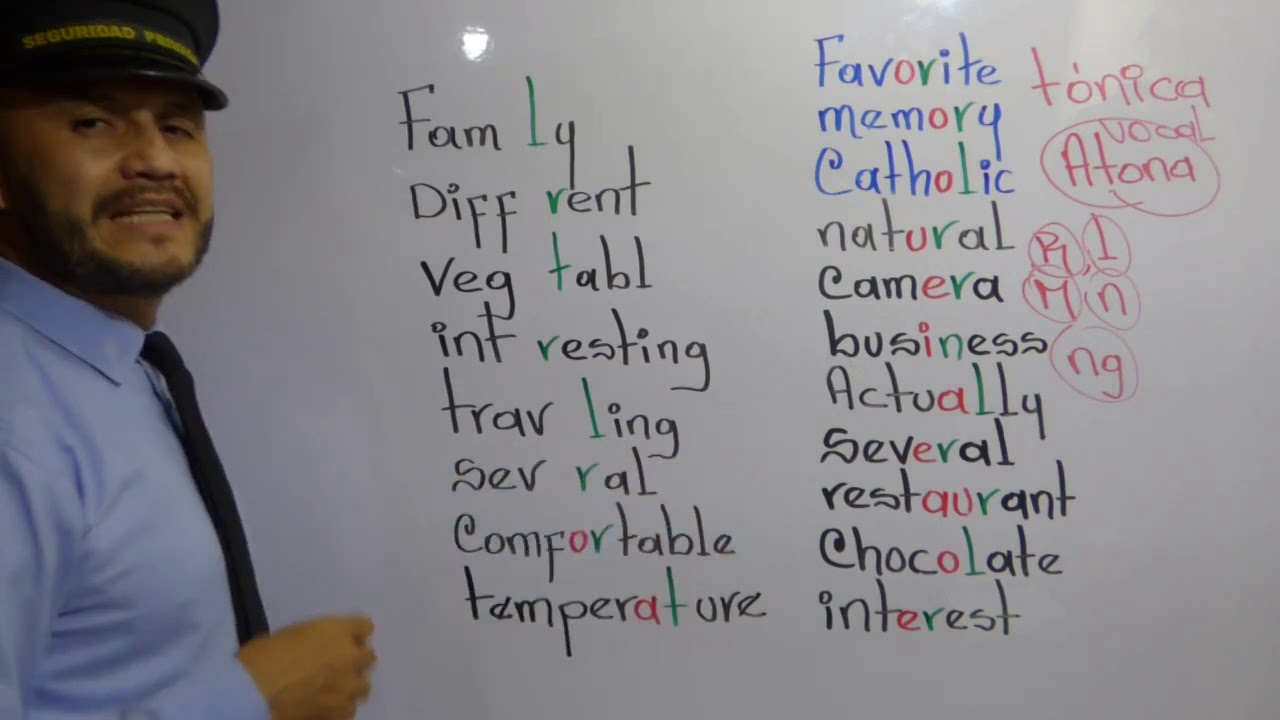 SEGURIDAD
Fam ly
Diff rent
Veg tabl
int resting
trav ling
sev ral
Comfortable
temperature
Favorite
memory
Catholic
natural
Camera
business
Actually
Several
restaurant
Chocolate
interest
tónica
vocal
Atona
R, l
M n
ng